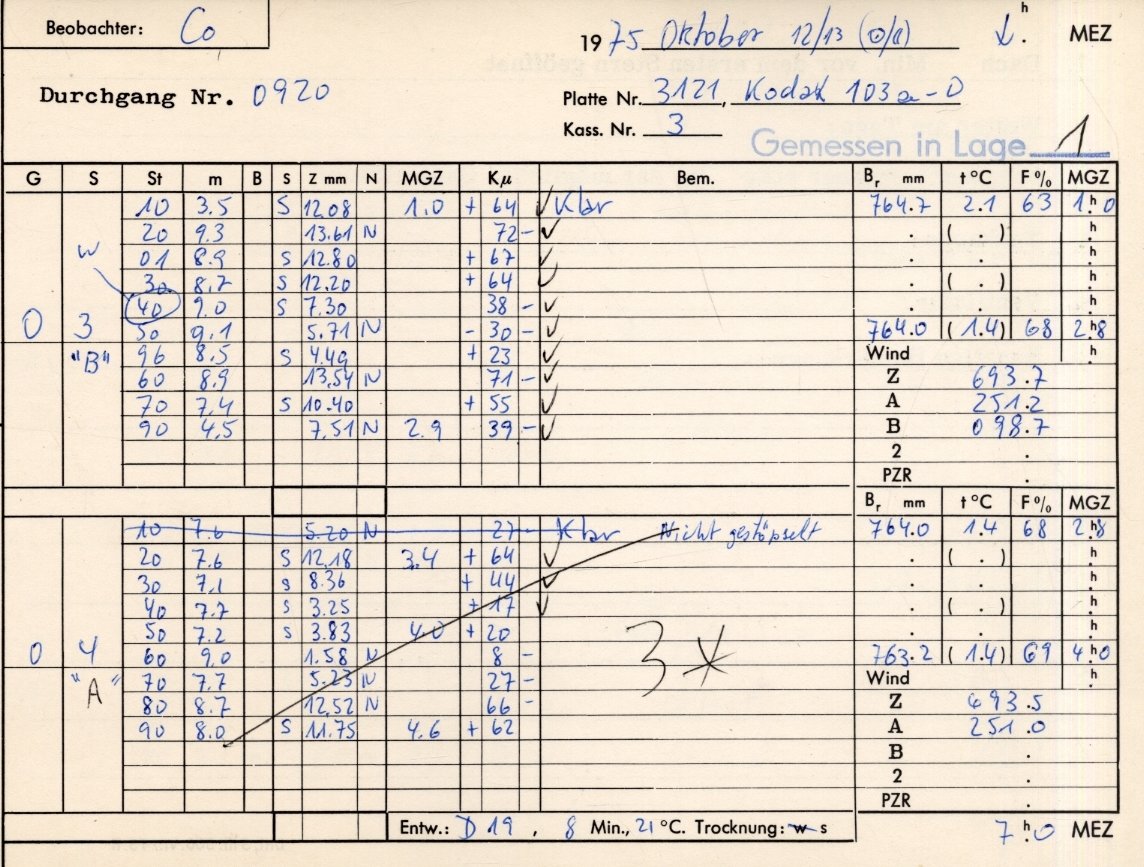 Beobachter: Co
1975 Oktober 12/13 (0/1) h MEZ
Durchgang Nr. 0920
Platte Nr. 3121, Kodak 103a-O
Kass. Nr. 3
Gemessen in Lage 1
G S St m B S Z mm N MGZ Kμ Bem. Br mm t °C F % MGZ
10 3.5 S 12.08 1.0 + 64 ✓ Klar 764.7 2.1 63 1h0
20 9.3 13.61 N 72 - ✓ . ( . ) h
W 01 8.9 S 12.80 + 67 ✓ . . h
30 8.7 S 12.20 + 64 ✓ . ( . ) h
40 9.0 S 7.30 38 - ✓ . . h
0 3 50 9.1 5.71 N - 30 - ✓ 764.0 (1.4) 68 2h8
"B" 96 8.5 S 4.49 + 23 ✓ Wind h
60 8.9 13.54 N 71 - ✓ Z 693.7
70 7.4 S 10.40 + 55 ✓ A 251.2
90 4.5 7.51 N 2.9 39 - ✓ B 098.7
2 .
PZR .
Br mm t °C F % MGZ
10 7.6 5.20 N 27 - Klar Nicht gestöpselt 764.0 1.4 68 2h8
20 7.6 S 12.18 3.4 + 64 ✓ . ( . ) h
30 7.1 S 8.36 + 44 ✓ . . h
40 7.7 S 3.25 + 17 ✓ . ( . ) h
50 7.2 S 3.83 4.0 + 20 . . h
0 4 60 9.0 1.58 N 8 - 3* 763.2 (1.4) 69 4h0
"A" 70 7.7 5.23 N 27 - Wind h
80 8.7 12.52 N 66 - Z 693.5
90 8.0 S 11.75 4.6 + 62 A 251.0
B .
2 .
PZR .
Entw.: D 19, 8 Min., 21 °C. Trocknung: w s 7h0 MEZ